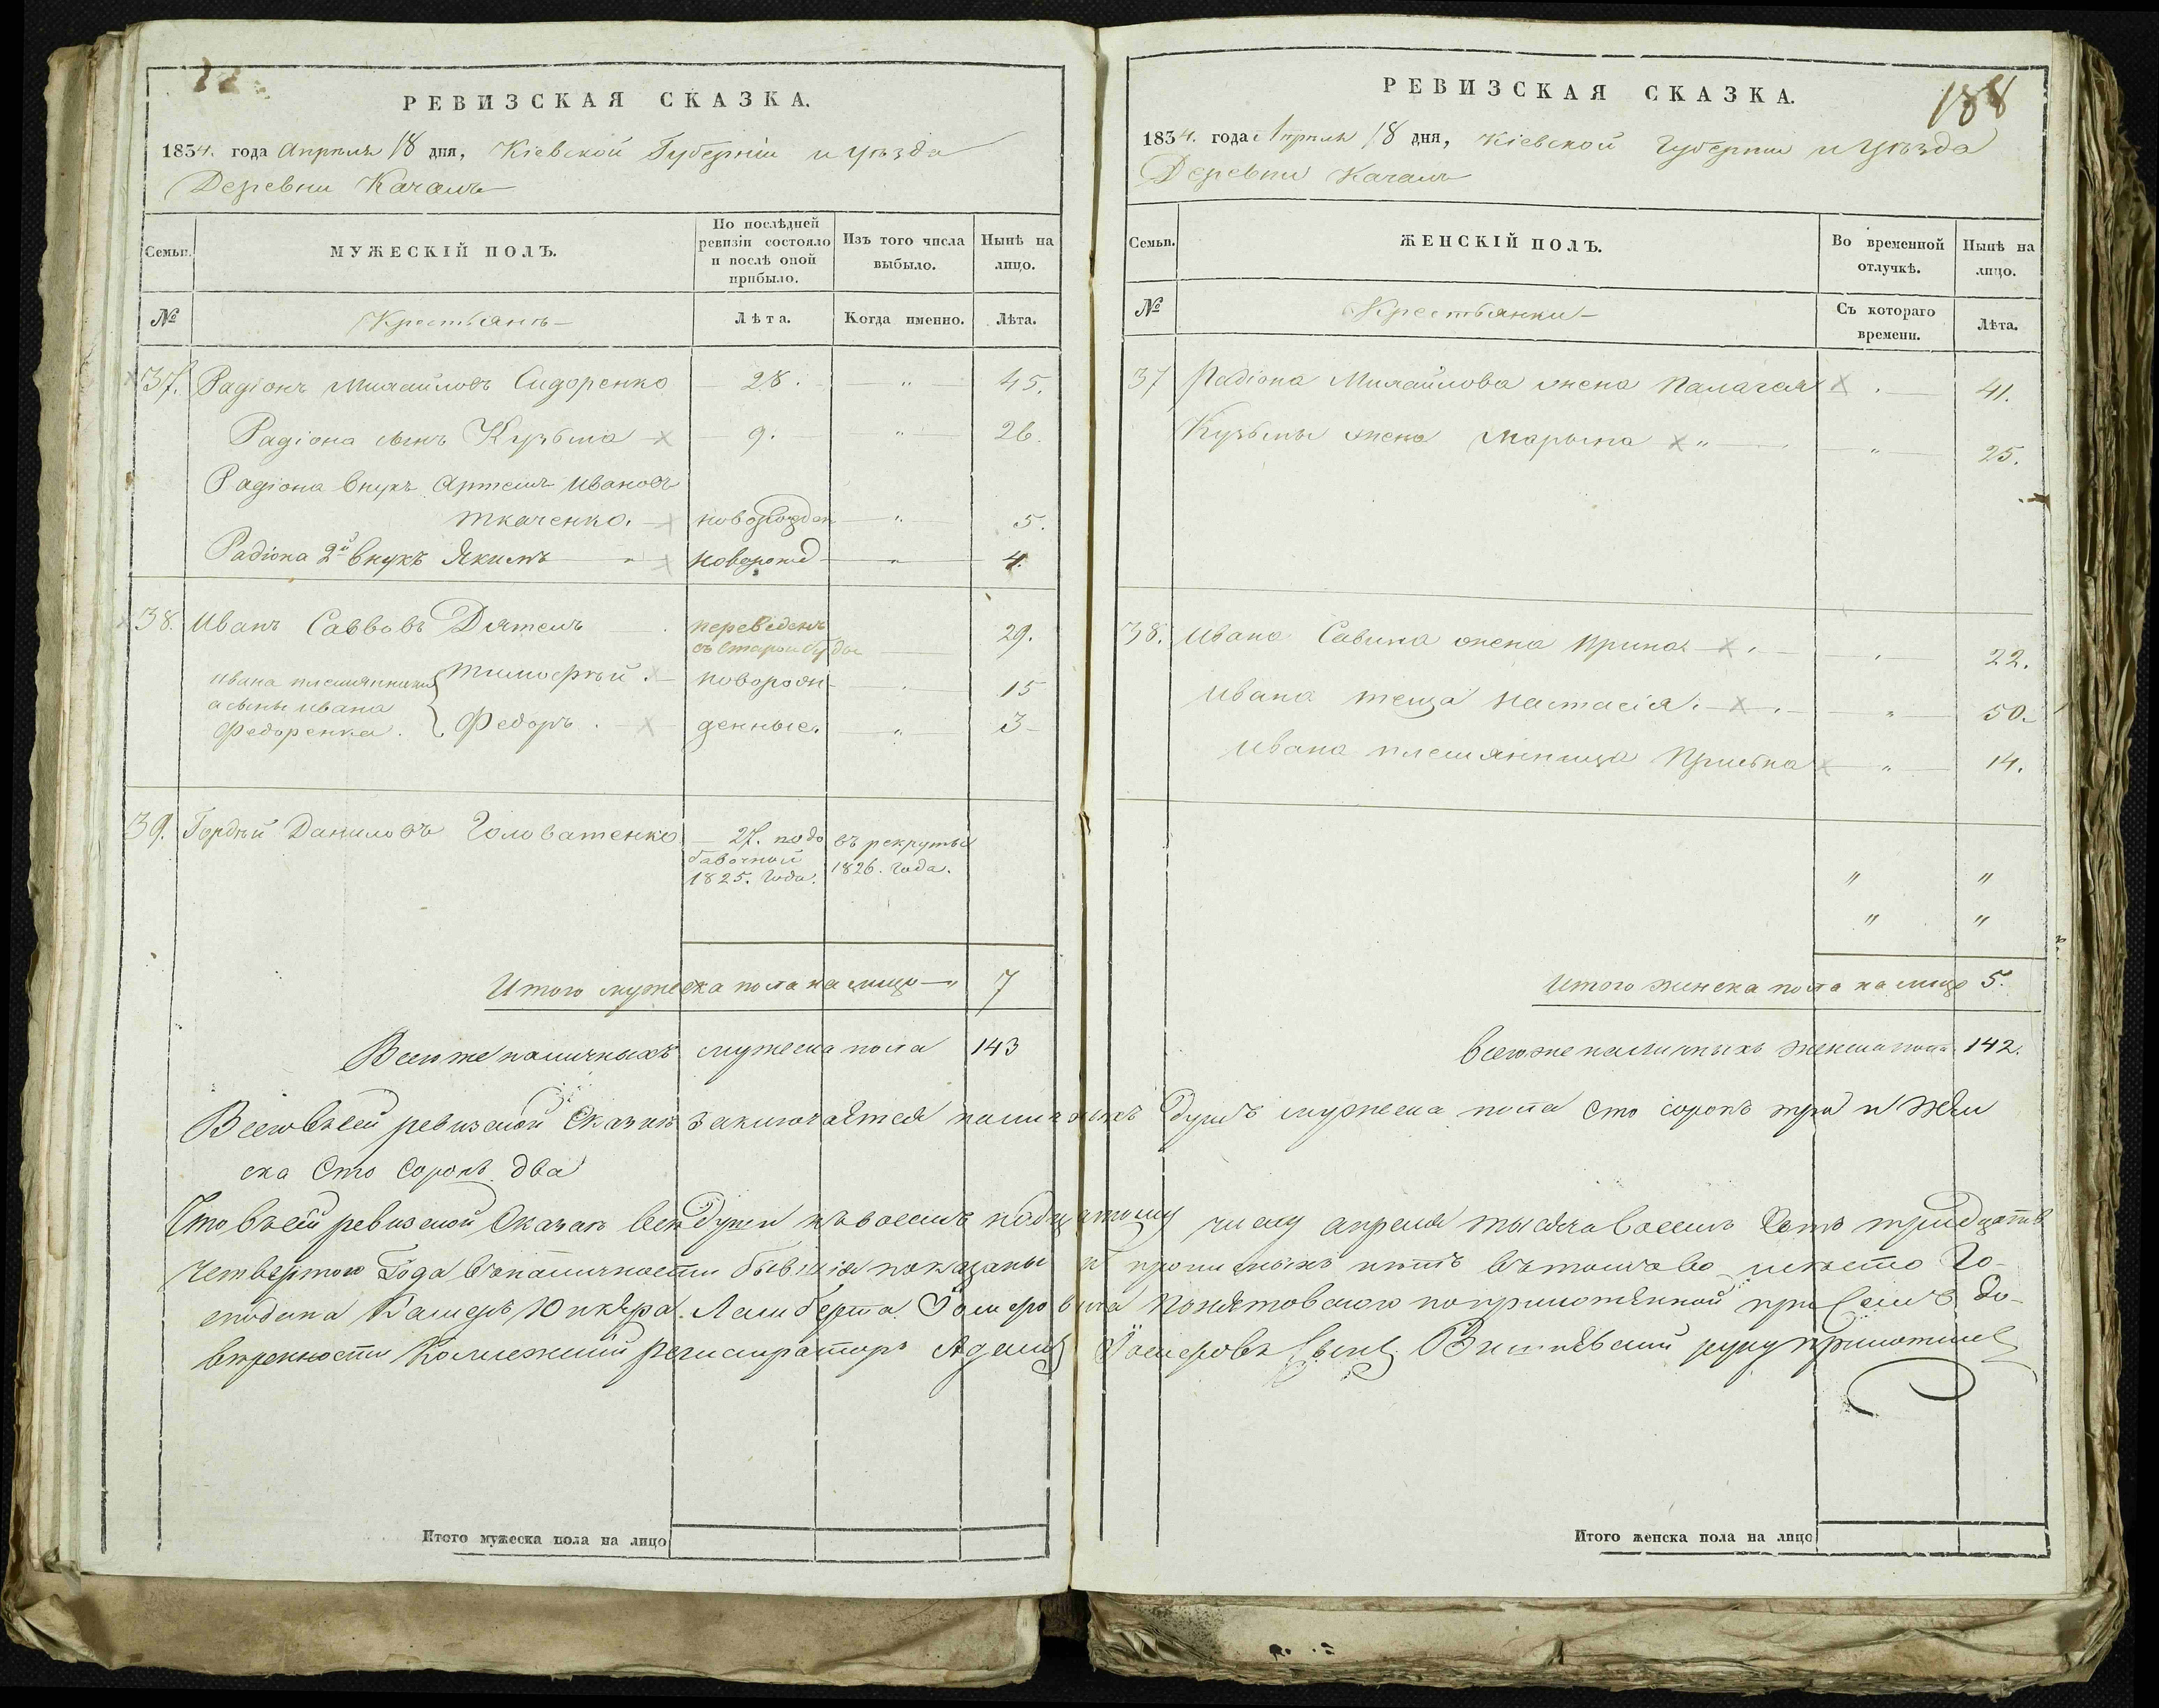 РЕВИЗСКАЯ СКАЗКА.
1834. года Апрѣля 18 дня, Кіевской Губерніи и уѣзда
Деревни Качалъ
Семьи.
МУЖЕСКІЙ ПОЛЪ.
По послѣдней ревизіи состояло и послѣ оной прибыло.
Изъ того числа выбыло.
Нынѣ на лицо.
№
Крестьянъ
Лѣта.
Когда именно.
Лѣта.
37. Радіонъ Михайловъ Сидоренко 28. " 45.
Радіона сынъ Кузьма 9. " 26.
Радіона внукъ Артемъ Ивановъ
Ткаченко. новорожден " 5.
Радіона 2й внукъ Якимъ " новорожд " 4.
38. Иванъ Саввовъ Дятелъ переведенъ 29.
съ Старой Буды
Ивана племянники Тимофѣй новорож- " 15
а сыны Ивана
Федоренка. Федоръ. денные. " 3
39. Гордѣй Даниловъ Головатенко 27. по до въ рекруты
бавочной 1826. года.
1825. года.
Итого мужеска пола на лицо " 7
Всего же наличныхъ мужеска пола 143
РЕВИЗСКАЯ СКАЗКА.
188
1834. года Апрѣля 18 дня, Кіевской Губерніи и уѣзда
Деревни Качалъ
Семьи.
ЖЕНСКІЙ ПОЛЪ.
Во временной отлучкѣ.
Нынѣ на лицо.
№
Крестьянки
Съ котораго времени.
Лѣта.
37 Радіона Михайлова жена Палагея 41.
Кузьмы жена Марьяна " " 25.
38. Ивана Савина жена Ирина " 22.
Ивана теща Настасія. " 50.
Ивана племянница Приська " 14.
" "
" "
Итого женска пола на лицо 5.
Всего же наличныхъ женска пола 142.
Всего въ сей ревизской Сказкѣ заключается наличныхъ душъ мужеска пола сто сорокъ три и жен
ска Сто Сорокъ два
Что въ сей ревизской Сказкѣ всѣ Души къ восемь надцатому числу апреля тысяча восемь Сотъ тридцать
четвертого Года въ наличности бывшія показаны и прописныхъ нѣтъ въ томъ во мѣсто Го-
сподина Камеръ Юнкера Ламберта Іосифовича Понятовского по приложенной при семъ до-
вѣренности Коллежскій регистраторъ Адамъ Іосифовъ Сынъ Вишнѣвскій руку приложилъ
Итого мужеска пола на лицо
Итого женска пола на лицо